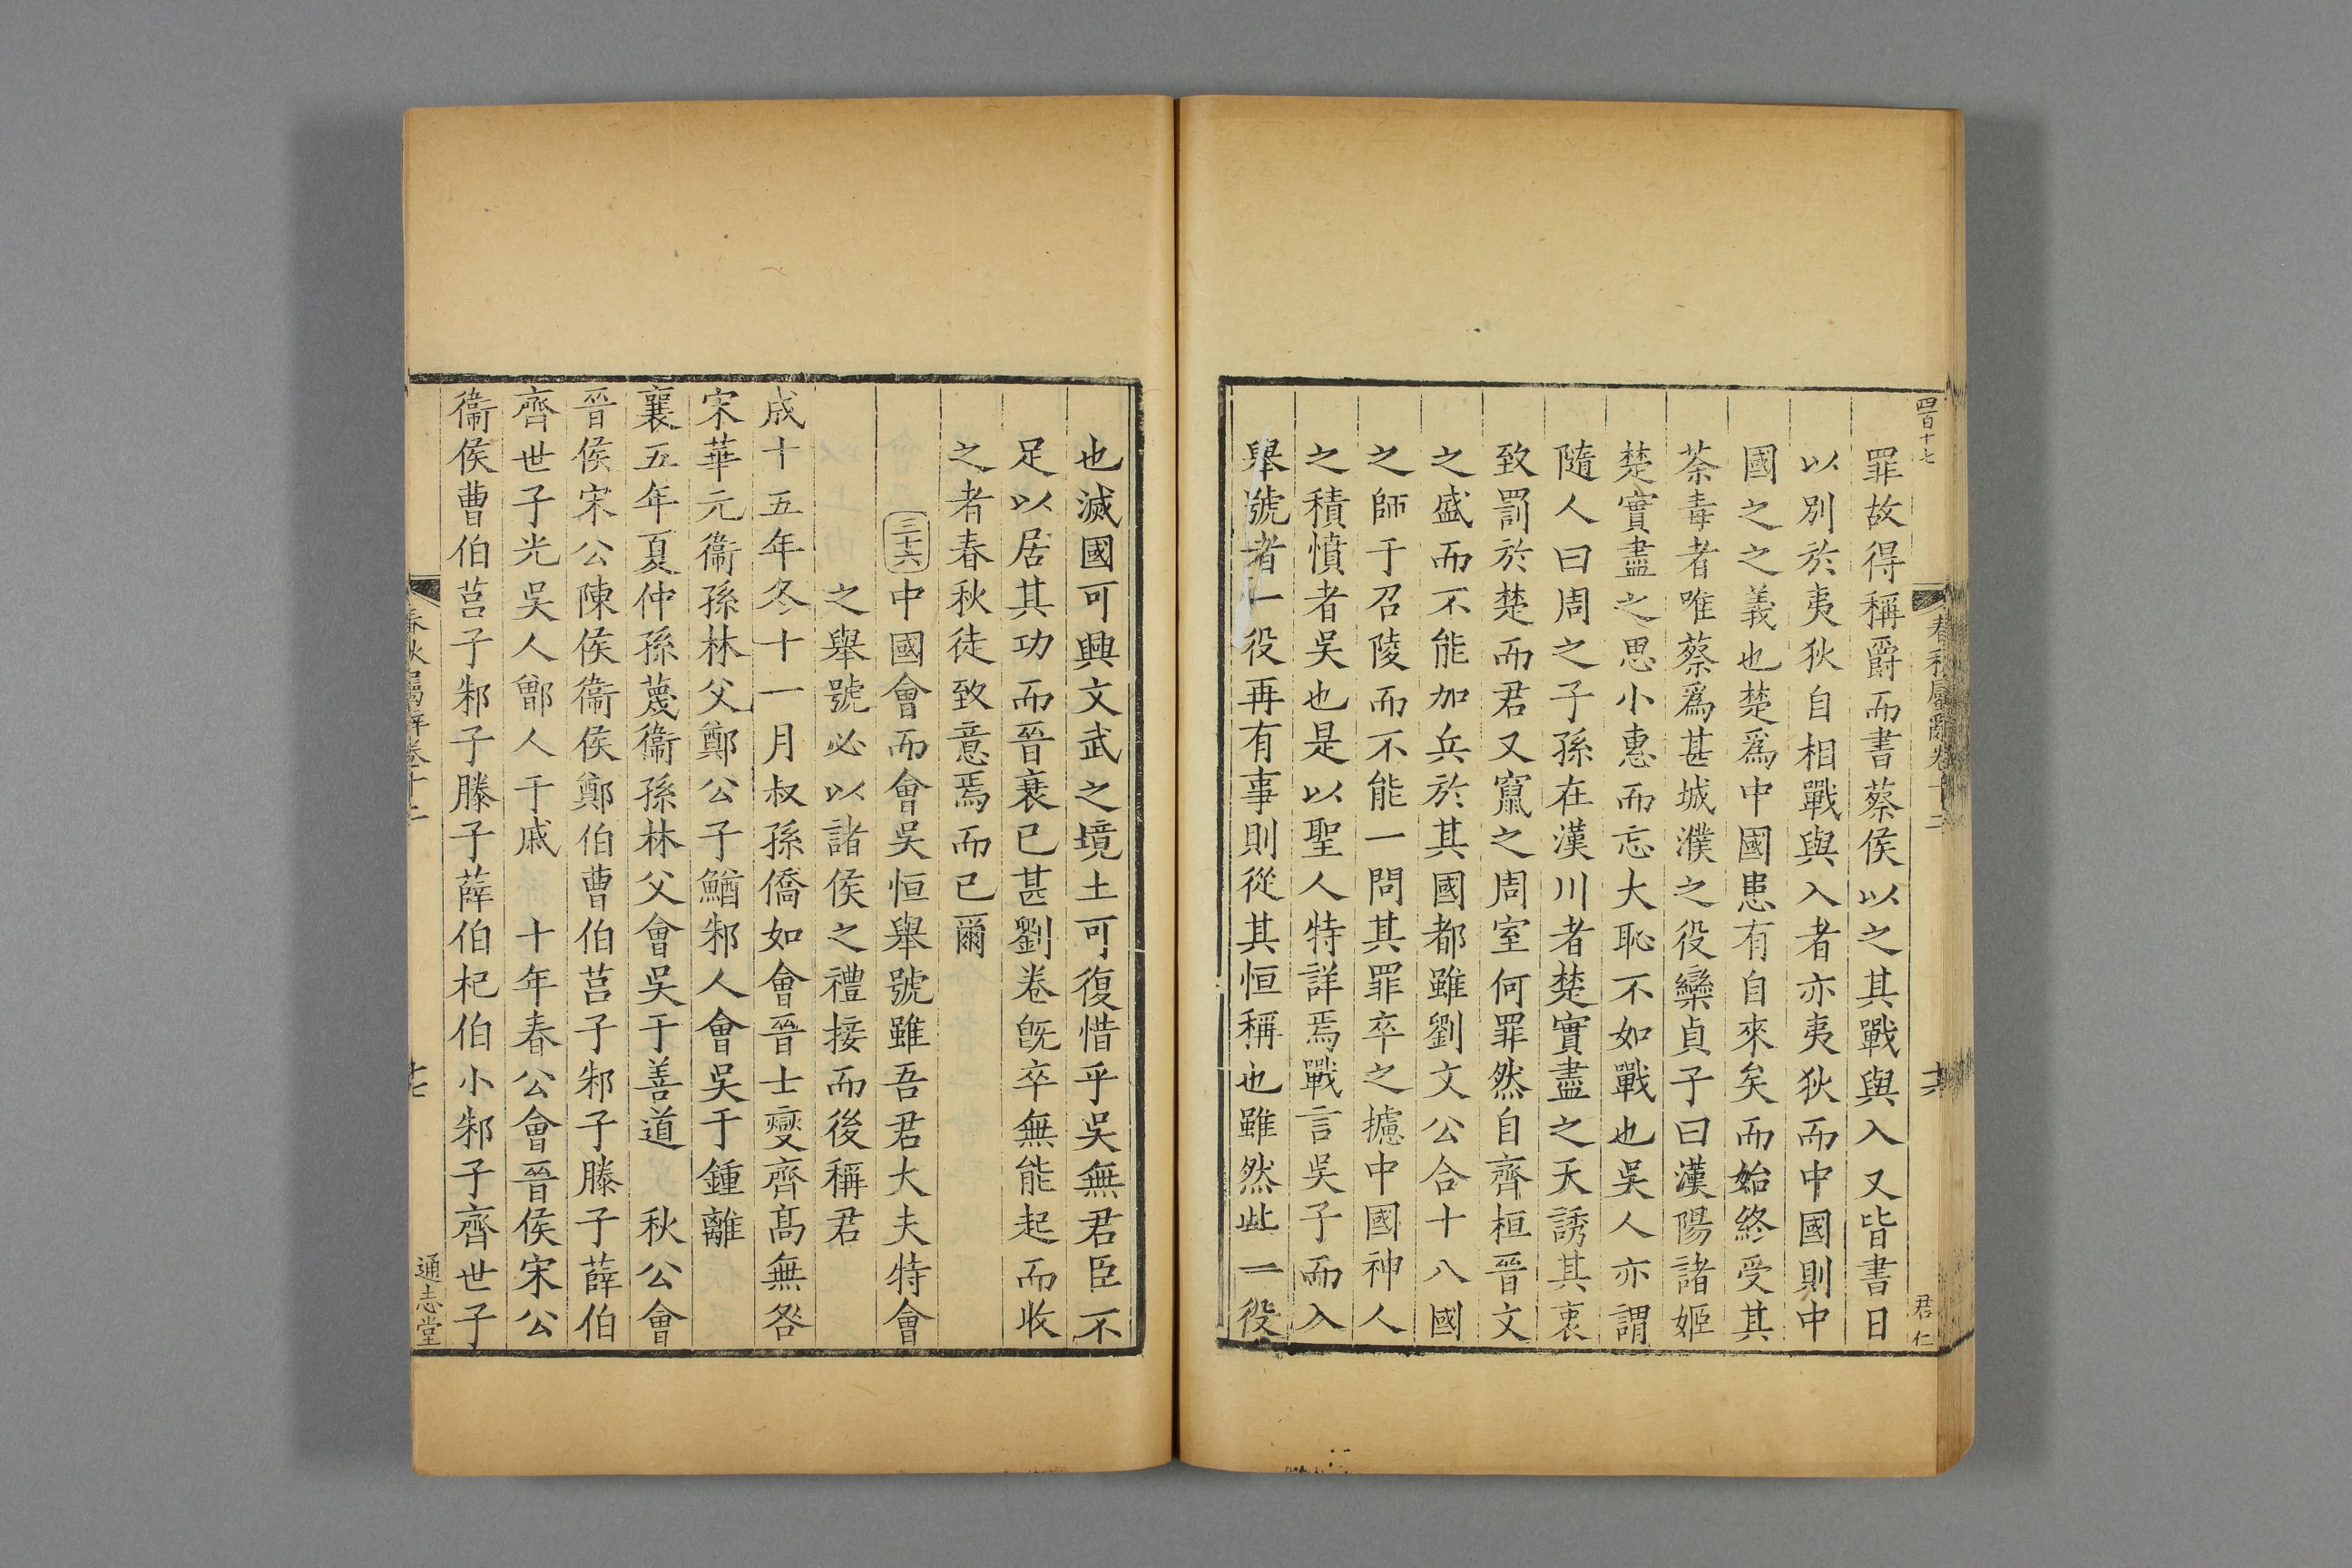 四百十七
春秋屬辭卷十二
十六
君仁
罪故得稱爵而書蔡侯以之其戰與入又皆書日
以別於夷狄自相戰與入者亦夷狄而中國則中
國之之義也楚爲中國患有自來矣而始終受其
荼毒者唯蔡爲甚城濮之役欒貞子曰漢陽諸姬
楚實盡之思小惠而忘大恥不如戰也吳人亦謂
隨人曰周之子孫在漢川者楚實盡之天誘其衷
致罰於楚而君又竄之周室何罪然自齊桓晉文
之盛而不能加兵於其國都雖劉文公合十八國
之師于召陵而不能一問其罪卒之攄中國神人
之積憤者吳也是以聖人特詳焉戰言吳子而入
舉號者一役再有事則從其恒稱也雖然此一役
也滅國可興文武之境土可復惜乎吳無君臣不
足以居其功而晉衰已甚劉卷旣卒無能起而收
之者春秋徒致意焉而已爾
三十六中國會而會吳恒舉號雖吾君大夫特會
之舉號必以諸侯之禮接而後稱君
成十五年冬十一月叔孫僑如會晉士燮齊髙無咎
宋華元衞孫林父鄭公子鰌邾人會吳于鍾離
襄五年夏仲孫蔑衞孫林父會吳于善道 秋公會
晉侯宋公陳侯衞侯鄭伯曹伯莒子邾子滕子薛伯
齊世子光吳人鄫人于戚 十年春公會晉侯宋公
衞侯曹伯莒子邾子滕子薛伯杞伯小邾子齊世子
春秋屬辭卷十二
十七
通志堂